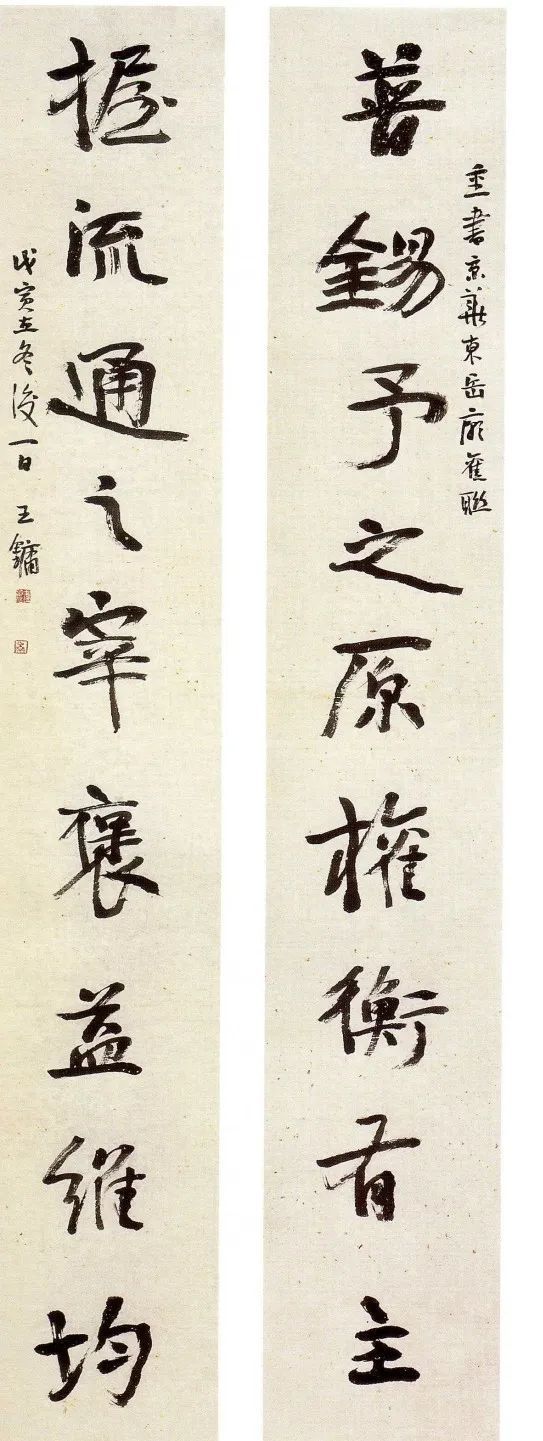 善錫予之原權衡有主
重書京華東岳廟舊聯
握流通之宰褒益維均
戊寅立冬後一日 王鏞